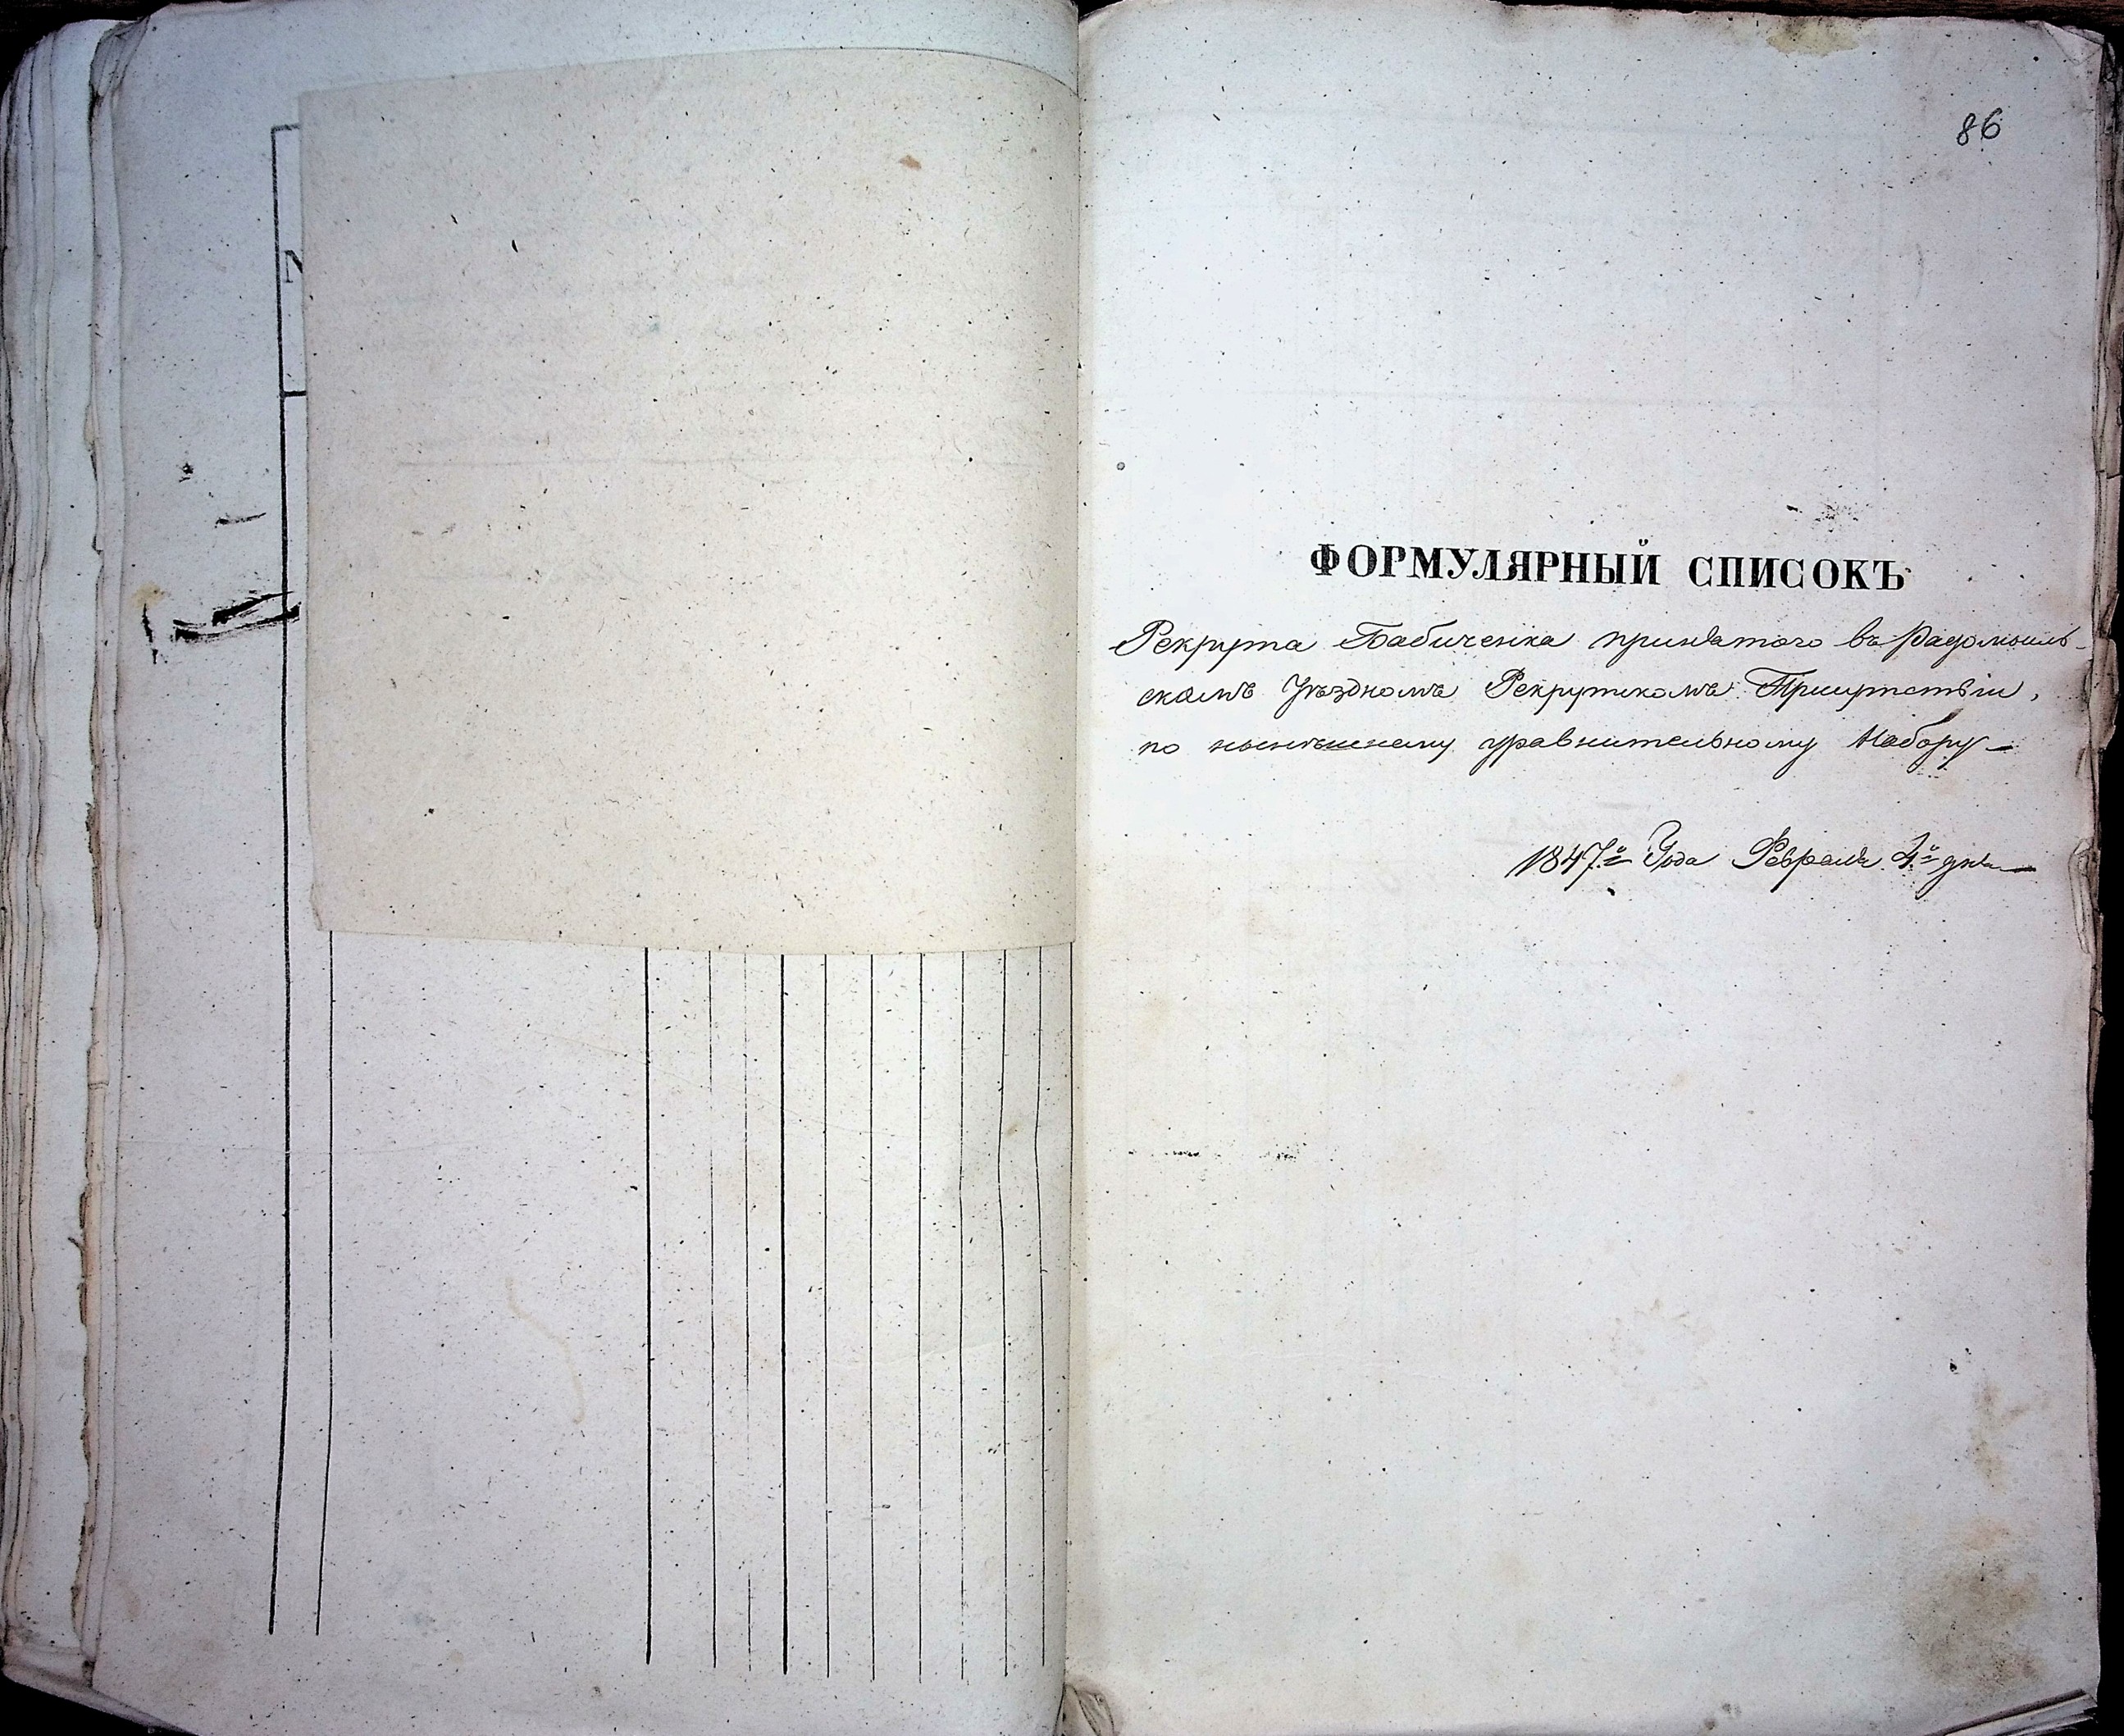 86
ФОРМУЛЯРНЫЙ СПИСОКЪ
Рекрута Бабиченка принятого въ Радомысль-
скомъ Уѣздномъ Рекрутскомъ Присутствіи,
по нынѣшнему уравнительному Набору
1847го Года Февраля 4го дня